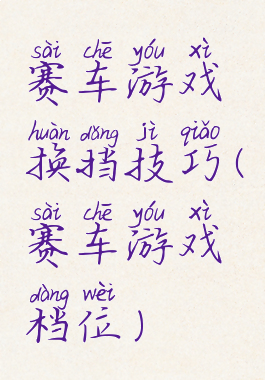 sài chē yóu xì
赛车游戏
huàn dǎng jì qiǎo
换挡技巧(
sài chē yóu xì
赛车游戏
dàng wèi
档位)